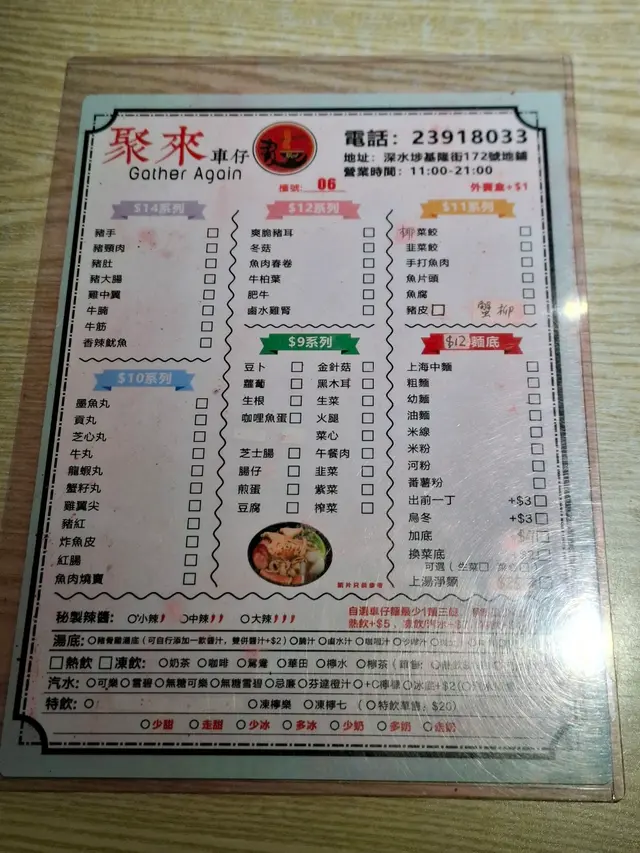 聚來車仔
Gather Again
電話：23918033
地址：深水埗基隆街172號地鋪
營業時間：11:00-21:00
檯號：06
外賣盒+$1
$14系列
豬手
豬頸肉
豬肚
豬大腸
雞中翼
牛腩
牛筋
香辣魷魚
$10系列
墨魚丸
貢丸
芝心丸
牛丸
龍蝦丸
蟹籽丸
雞翼尖
豬紅
炸魚皮
紅腸
魚肉燒賣
$12系列
爽脆豬耳
冬菇
魚肉春卷
牛柏葉
肥牛
鹵水雞腎
$9系列
豆卜 金針菇
蘿蔔 黑木耳
生根 生菜
咖哩魚蛋 火腿
菜心
芝士腸 午餐肉
腸仔 韭菜
煎蛋 紫菜
豆腐 榨菜
圖片只供參考
$11系列
柳菜餃
韭菜餃
手打魚肉
魚片頭
魚腐
豬皮 蟹柳
$12麵底
上海中麵
粗麵
幼麵
油麵
米線
米粉
河粉
番薯粉
出前一丁 +$3
烏冬 +$3
加底
換菜底
可選（生菜 菜心）
上湯淨麵
秘製辣醬：小辣 中辣 大辣
自選車仔麵最少1麵三餸
熱飲+$5
湯底：豬骨雞湯底（可自行添加一款醬汁，雙併醬汁+$2）腩汁 鹵水汁 咖喱汁 沙嗲汁
熱飲 凍飲：奶茶 咖啡 鴛鴦 華田 檸水 檸茶
汽水：可樂 雪碧 無糖可樂 無糖雪碧 忌廉 芬達橙汁 +C檸檬
特飲：凍檸樂 凍檸七（特飲單講：$20）
少甜 走甜 少冰 多冰 少奶 多奶 走奶